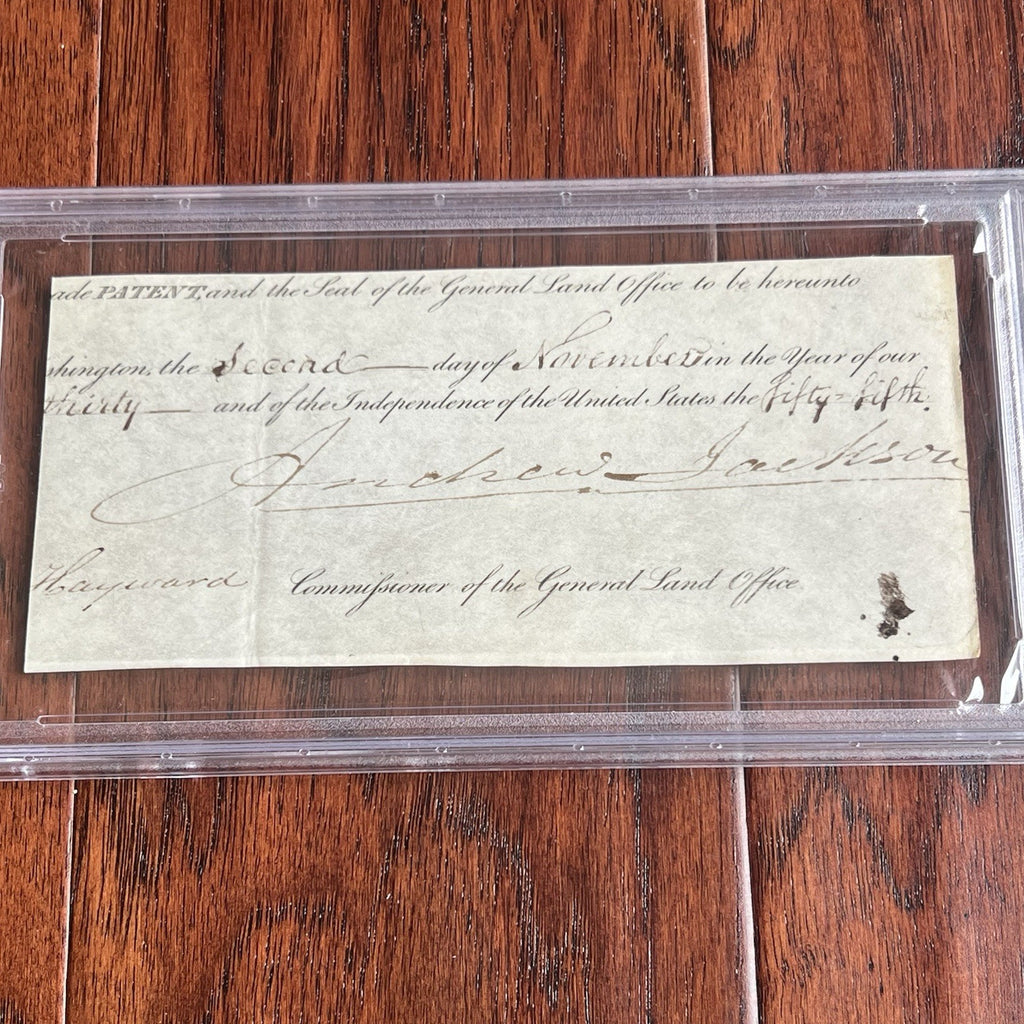 ade PATENT, and the Seal of the General Land Office to be hereunto
shington, the Second — day of November in the Year of our
thirty — and of the Independence of the United States the fifty=fifth.
Andrew Jackson
Hayward Commiſsioner of the General Land Office